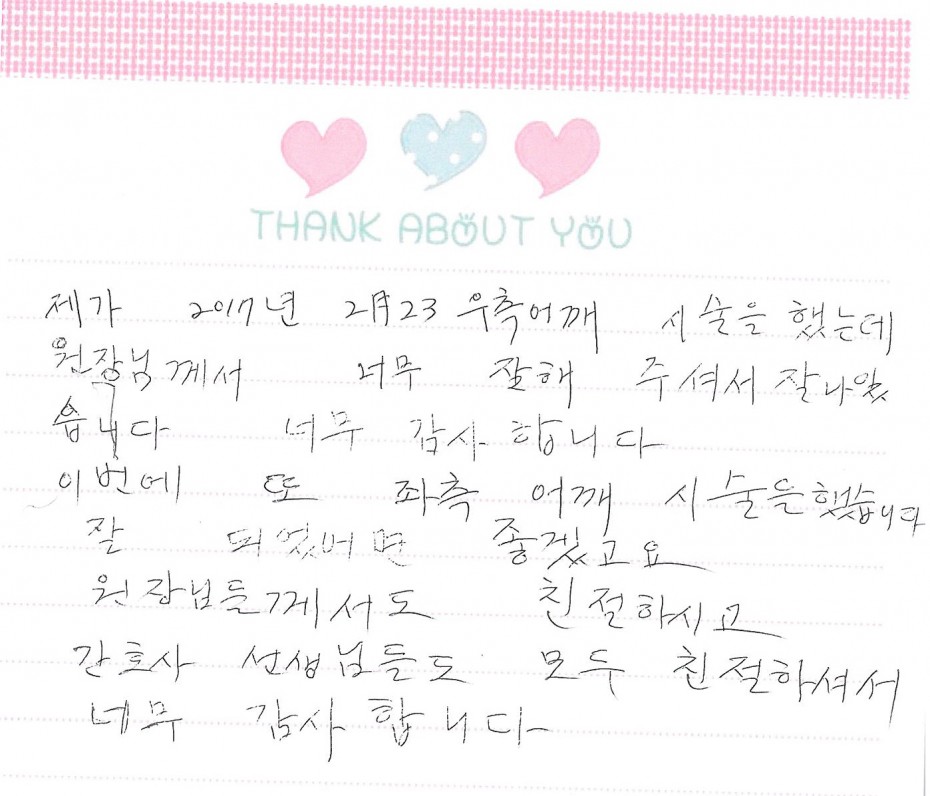 THANK ABOUT YOU
제가 2017년 2月23 우측어깨 시술을 했는데
원장님께서 너무 잘해 주셔서 잘나았
습니다 너무 감사합니다
이번에 또 좌측 어깨 시술을했습니다
잘 되었어면 좋겠고요
원장님들께서도 친절하시고
간호사 선생님들도 모두 친절하셔서
너무 감사합니다